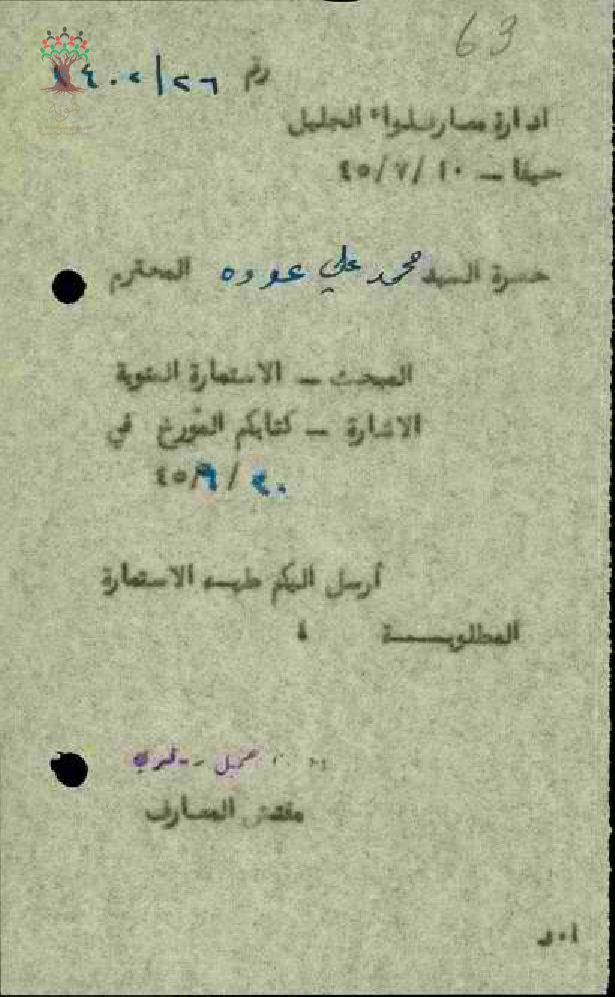 63
رقم ٢٦/٤٠٢
ادارة معارف لواء الجليل
حيفا – ١٠ /٧ /٤٥
حضرة السيد محمد علي عوده المحترم
المبحث – الاستمارة السنوية
الاشارة – كتابكم المؤرخ في
٢٠ /٦/٤٥
أرسل اليكم طيه الاستمارة
المطلوبة ،
مفتش المعارف